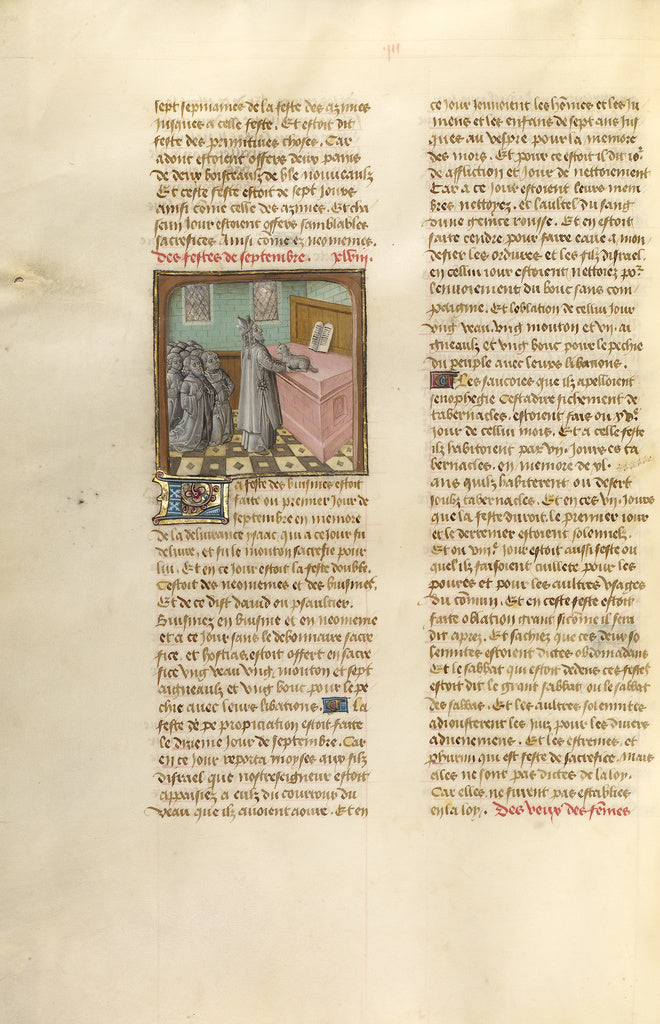 sept sepmaines de la feste des azimes
jusques a celle feste. Et estoit dit
feste des primitives choses. Car
adont estoient offers deux pains
de deux boisteaulx de ble nouveaulx
Et ceste feste estoit de sept jours
ainsi come celle des azimes. Et cha
scun jour estoient offers samblables
sacrefices ainsi come ez neomenies.
Des festes de septembre. xlviii.
La feste des buisines estoit
faite ou premier jour de
septembre en memore
de la delivrance ysaac, qui a ce jour fu
delivre, et fu le mouton sacrefie pour
lui. Et en ce jour estoit la feste double.
Cestoit des neomenies et des buisines.
Et de ce dist david ou psaultier.
Buisinez en buisine et en neomenie
et a ce jour sans le debonnaire sacre
fice. et hostias, estoit offert en sacre
fice ung veau, ung mouton et sept
aigneaulx et ung bouc pour le pe
chie avec leurs libations. La
feste de pe propiciation estoit faite
le dixieme jour de septembre. Car
en ce jour reporta moyses aux filz
disrael que nostreseigneur estoit
appaisiez a eulz du courroux du
veau que ilz avoient aoure. Et en
ce jour jeunoient les hommes et les ju
mens et les enfans de sept ans jus
ques au vespre pour la memore
des mois. Et pour ce estoit il dit jor
de affliction et jour de nettoiement
Car a ce jour estoient leurs mem
bres nettoyez. et laultel du sang
dune genice rousse. Et en estoit
faite cendre pour faire eaue a mon
defier les ordures et les filz disrael.
en cellui jour estoient nettoiez por
lenvoiement du bouc sans com
paignie. Et loblation de cellui jour
ung veau, ung mouton et vii. ai
gneaulx et ung bouc pour le pechie
du peuple avec leurs libations.
Les faucores que ilz apelloient
senophegie Cestadire fichement de
tabernacles. estoient fais ou xve
jour de cellui mois. Et a celle feste
ilz habitoient par vii. jours es ta
bernacles. en memore de xl.
ans quilz habiterent ou desert
soubz tabernacles. Et en ces vii. jours
que la feste duroit, le premier jour
et le derrenier estoient solemnelz.
Et ou viiie jour estoit aussi feste ou
quel ilz faisoient cullete pour les
poures et pour les aultres usages
du comun. Et en ceste feste estoit
faite oblation grant sicome il sera
dit apres. Et sachiez que ces deux so
lemnitez estoient dictes obdomadans
Et le sabbat qui estoit dedens ces festes
estoit dit le grant sabbat ou le sabbat
des sabbas. Et les aultres solemnites
adjousterent les juiz pour les divers
advenemens. Et les estremes, et
phurim qui est feste de sacrefice. Mais
elles ne sont pas dictes de la loy.
Car elles ne furent pas establies
en la loy. Des veux des femes